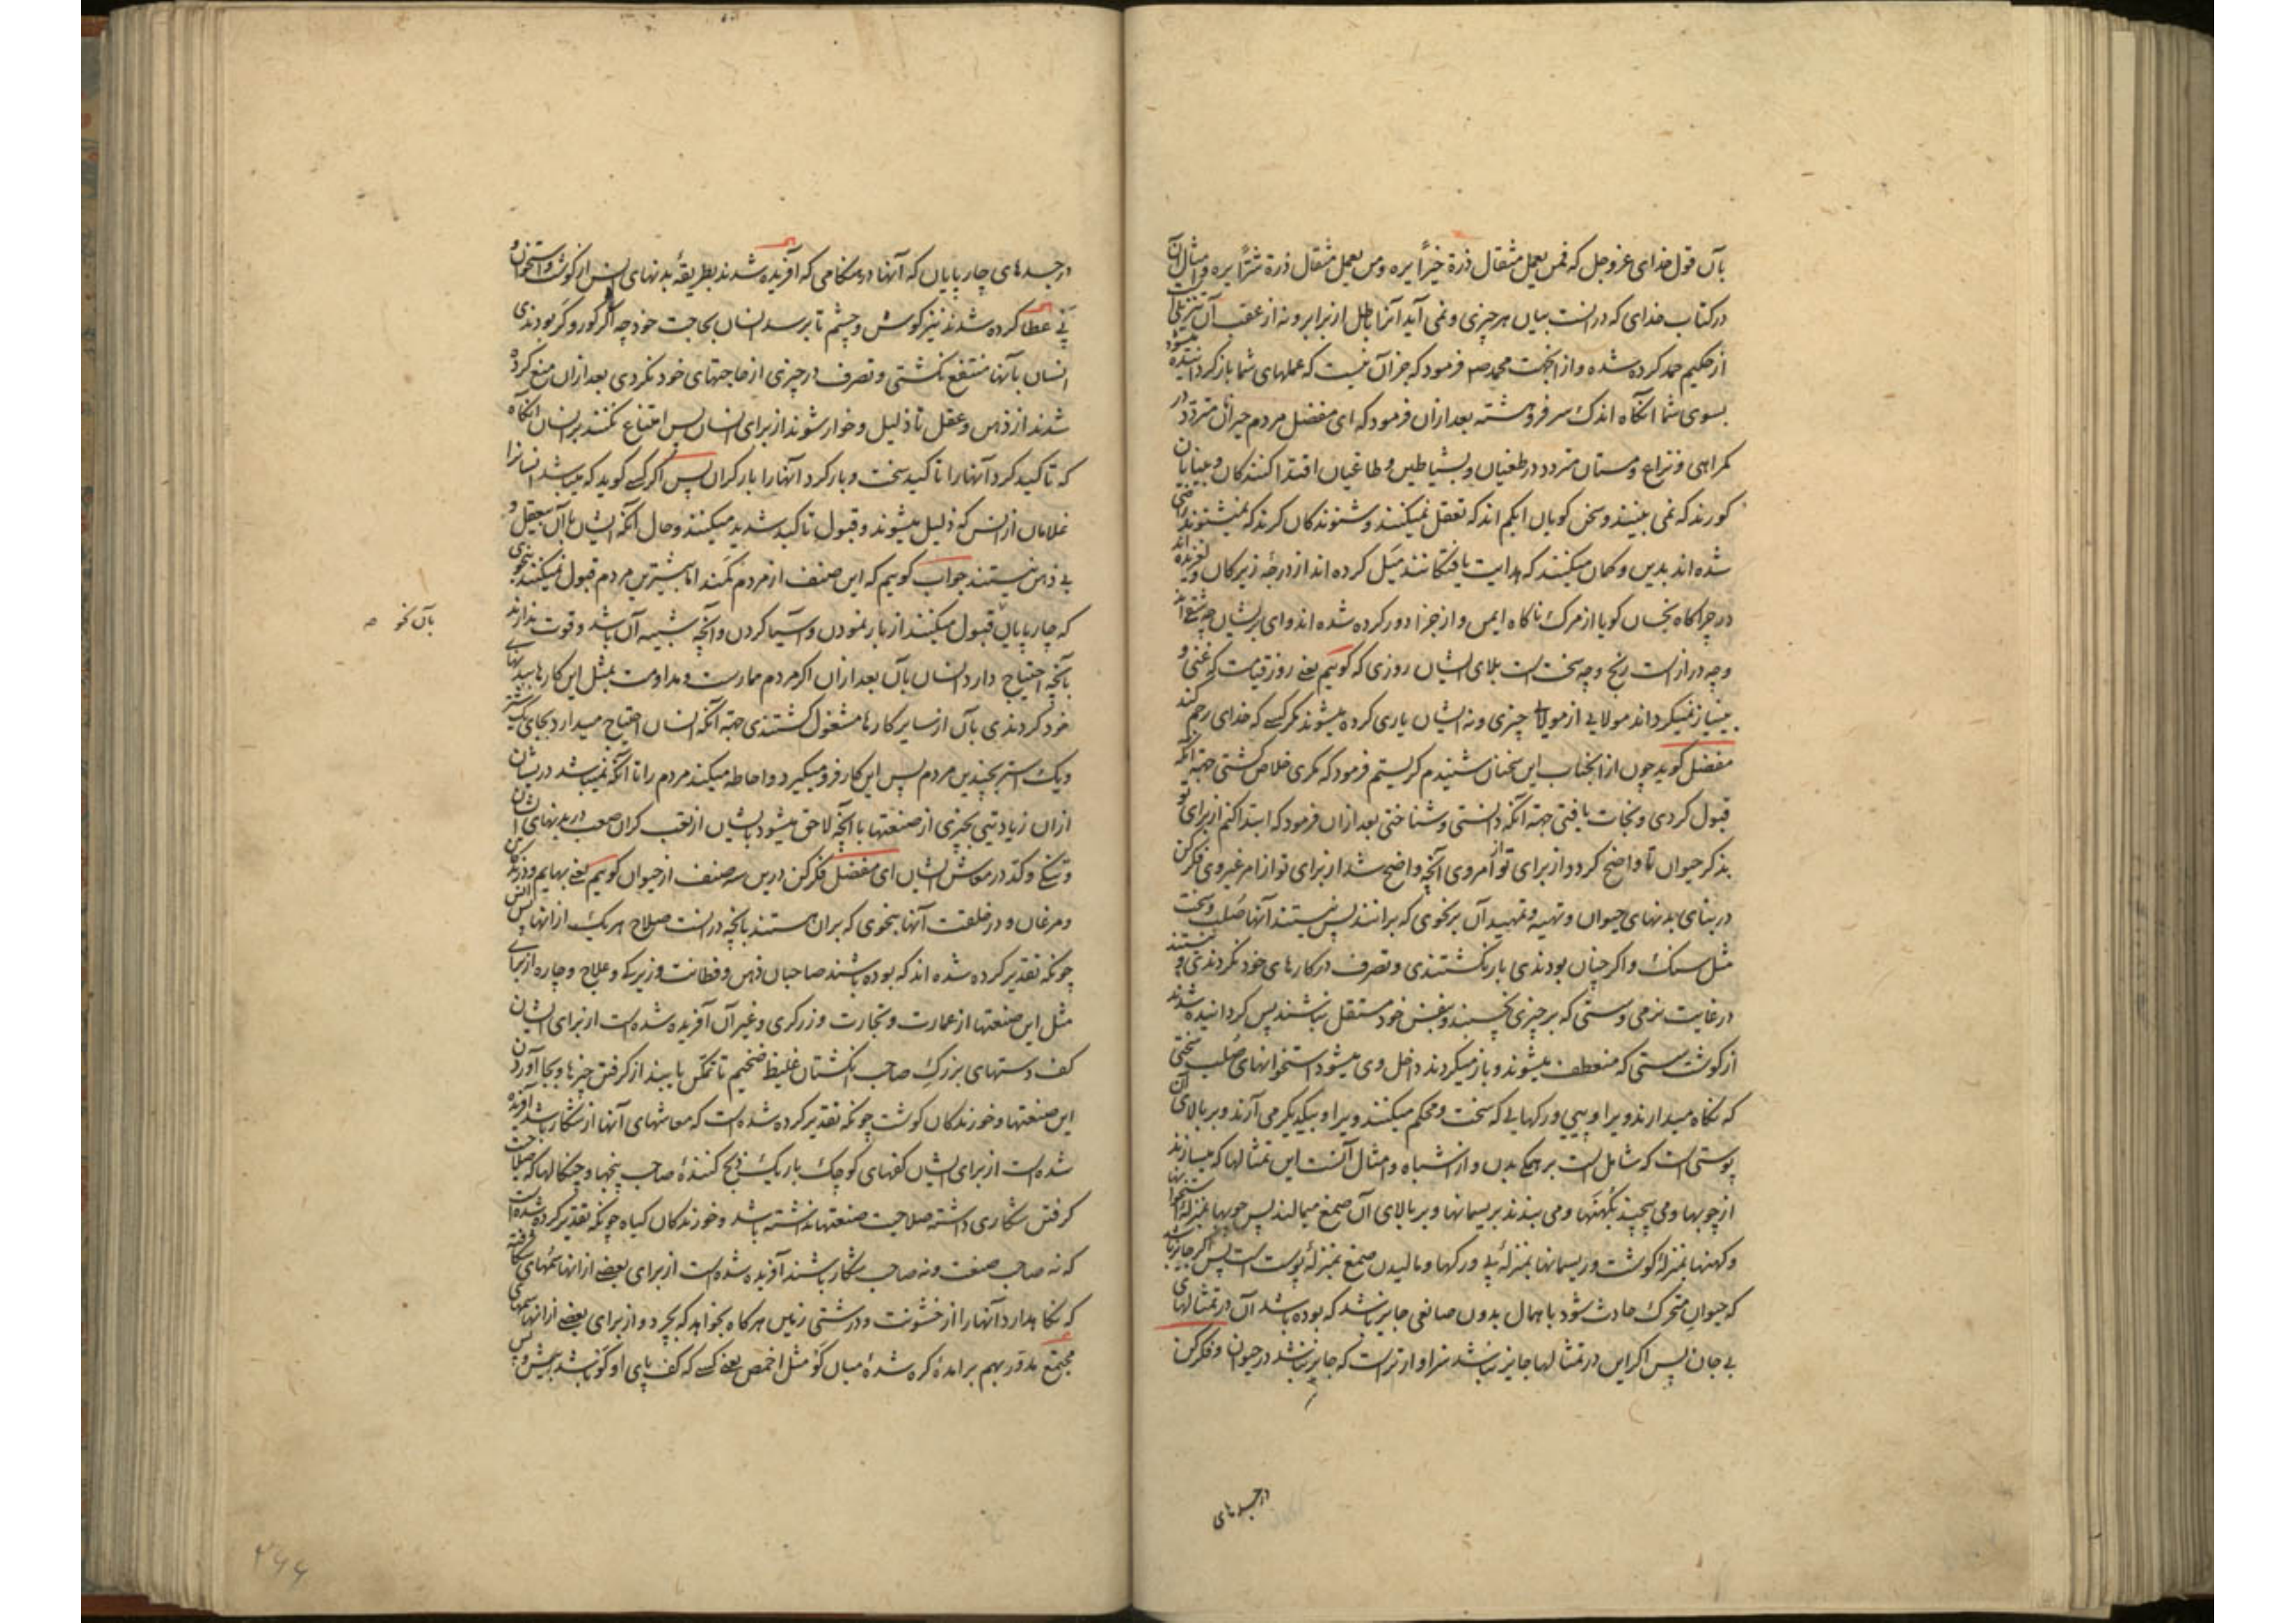 بآن قول خدای عزوجل که فمن یعمل مثقال ذرة خیرًا یره ومن یعمل مثقال ذرة شرًا یره و امثال آن
در کتاب خدای که درانست بیان هر چیزی و نمی آید آنرا باطل از برابر و نه از عقب آن تنزیلی است
از حکیم حمد کرده شده و از اینجهت محمد صم فرمود که جز آن نیست که عملهای شما باز کردانیده میشود
بسوی شما آنکاه اندک سر فرو هشته بعد ازان فرمود که ای مفضل مردم حیرانان متردد در
کمراهی و نزاع و مستان متردد در طغیان و بشیاطین و طاغیان اقتدا کنندکان و بینایان
کورند که نمی بینند و سخن کویان ابکم اند که تعقل نمیکنند و شنوندکان کرند که نمیشنوند راضی
شده اند بدین و کمان میکنند که هدایت یافتکانند میل کرده اند از درجهٔ زیرکان و لغزیده اند
در چراکاه نجسان کویا از مرک ناکاه ایمن و از جزا دور کرده شده اند وای بریشان چه شقی اند
و چه درازست رنج و چه سخت است بلای ایشان روزی که کوییم یعنی روز قیامت که غنی و
بینیاز نمیکرداند مولایی از مولا چیزی و نه ایشان یاری کرده میشوند مکر کسی که خدای رحم کند
مفضل کوید چون از انجناب این سخنان شنیدم کریستم فرمود که مکری خلاص کشتی جهة آنکه
قبول کردی و نجات یافتی جهة آنکه دانستی و شناختی بعد ازان فرمود که ابتدا کنم از برای تو
بذکر حیوان تا واضح کردد از برای تو از امر وی آنچه واضح شد از برای تو از امر غیر وی فکر کن
در بنای بدنهای حیوان و تهیه و تمهید آن بر نحوی که برانند پس نیستند آنها صلب و سخت
مثل سنک و اکر چنان بودندی باز نکشتندی و تصرف در کارهای خود نکردندی و نیستند
در غایت نرمی و سستی که بر چیزی نچسپند و بنفس خود مستقل نباشند پس کردانیده شدند
از کوشت سستی که منعطف میشوند و باز میکردند داخل وی میشود استخوانهای صلب سختی
که نکاه میدارند ویرا و پیی و رکهایی که سخت و محکم میکنند ویرا و بیکدیکر می آرند و بر بالای آن
پوستی است که شامل است بر همکی بدن و از اشباه و امثال آنست این تمثالها که میسازند
از چوبها و می پیچند بکهنها و می بندند بریسمانها و بر بالای آن صمغ میمالند پس چوبها بمنزلهٔ استخوانها
و کهنها بمنزلهٔ کوشت و ریسمانها بمنزلهٔ پی و رکها و مالیدن صمغ بمنزلهٔ پوست است پس اکر جایز باشد
که حیوان متحرک حادث شود باهمال بدون صانعی جایز باشد که بوده باشد آن در تمثالهای
بی جان پس اکر این در تمثالها جایز نباشد سزاوارترست که جایز نباشد در حیوان و فکر کن
در جسدهای
در جسدهای چارپایان که آنها در هنکامی که آفریده شدند بطریقهٔ بدنهای انس از کوشت و استخوان و
پی عطا کرده شدند نیز کوش و چشم تا برسد انسان بحاجت خود چه اکر کور و کر بودندی
انسان بآنها منتفع نکشتی و تصرف در چیزی از حاجتهای خود نکردی بعد ازان منع کرده
شدند از ذهن و عقل تا ذلیل و خوار شوند از برای انسان پس امتناع نکنند بر انسان آنکاه
که تاکید کرد آنها را تاکید سخت و بار کرد آنها را بار کران پس اکر کسی کوید که میباشد انسانرا
غلامان از انس که ذلیل میشوند و قبول تاکید شدید میکنند و حال آنکه ایشان با آن بیعقل و
بی ذهن نیستند جواب کوییم که این صنف از مردم کمند اما بیشترین مردم قبول نمیکنند بنحوی
که چارپایان قبول میکنند از بار نمودن و آسیا کردن و آنچه شبیه آن باشد و قوت ندارند
بآن نحو صه
بآنچه احتیاج دارد انسان بآن بعد ازان اکر مردم ممارست و مداومت بمثل این کارها ببدنهای
خود کردندی بآن از سایر کارها مشغول کشتندی جهة آنکه انسان احتیاج میدارد بجای یک شتر
و یک استر بچندین مردم پس این کار فرو میکیرد و احاطه میکند مردم را تا آنکه نمیباشد دریشان
ازان زیادتیی بچیزی از صنعتها با آنچه لاحق میشود بایشان از تعب کران صعب در بدنهای ایشان
و تنکی و کد در معاش ایشان ای مفضل فکر کن درین سه صنف از حیوان کوییم یعنی بهایم و درندکان
و مرغان و در خلقت آنها بنحوی که بران هستند بآنچه درانست صلاح هر یک از انها پس انس
چونکه تقدیر کرده شده اند که بوده باشند صاحبان ذهن و فطانت و زیرکی و علاج و چاره از برای
مثل این صنعتها از عمارت و تجارت و زرکری و غیر آن آفریده شده است از برای ایشان
کف دستهای بزرک صاحب انکشتان غلیظ ضخیم تا تمکن یابند از کرفتن چیزها و بجا آوردن
این صنعتها و خورندکان کوشت چونکه تقدیر کرده شده است که معاشهای آنها از شکار باشد آفریده
شده است از برای ایشان کفهای کوچک باریک ذبح کنندهٔ صاحب پنجها و چنکالها که صلاحیت
کرفتن شکاری داشته صلاحیت صنعتها نداشته باشد و خورندکان کیاه چونکه تقدیر کرده شده است
که نه صاحب صنعت و نه صاحب شکار باشند آفریده شده است از برای بعضی از انها سمهای شکافته
که نکاهدارد آنها را از خشونت و درشتی زمین هرکاه بخواهد که بچرد و از برای بعضی از انها سمهای
مجتمع مدور بهم برآمدهٔ کره شدهٔ میان کو مثل اخمص یعنی کسی که کف پای او کو باشد
۲۶۶